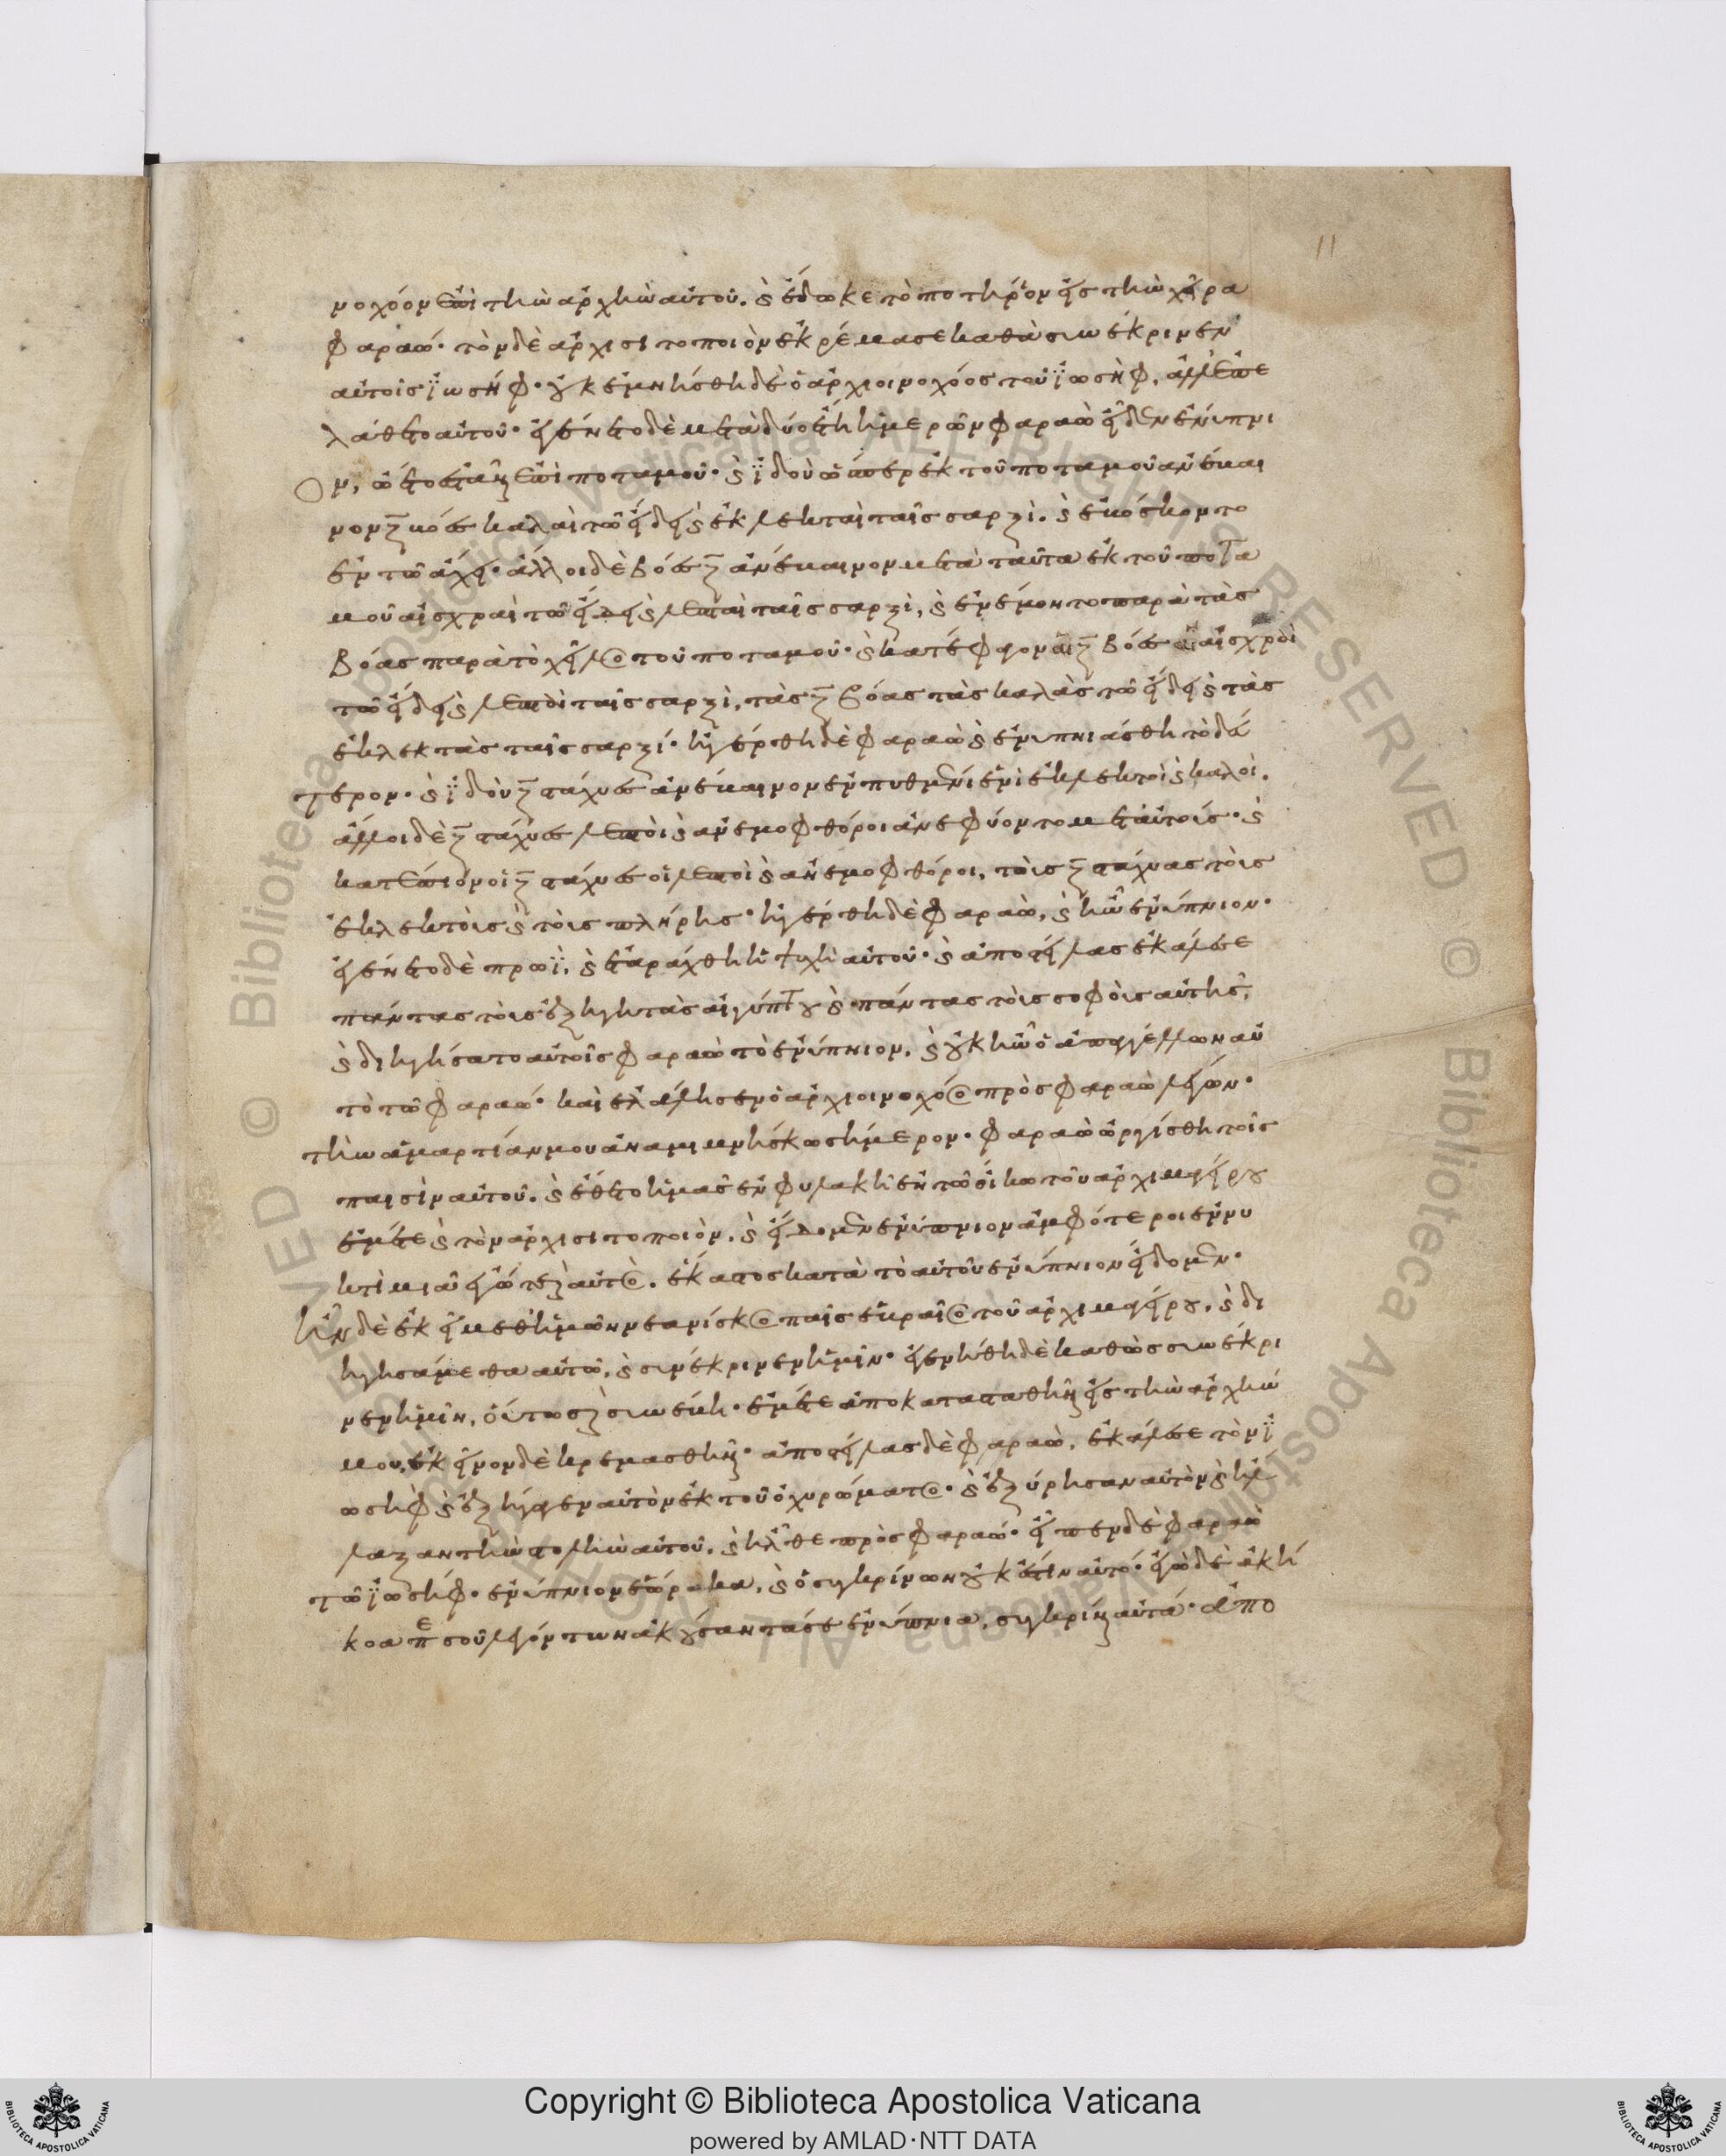 11
νοχόον ἐπὶ τὴν ἀρχὴν αὐτοῦ. ϗ ἔδωκε τὸ ποτήριον εἰς τὴν χεῖρα
φαραώ· τὸν δὲ ἀρχισιτοποιὸν ἐκρέμασε καθὰ συνέκρινεν
αὐτοῖς ϊωσήφ· οὐκ ἐμνήσθη δὲ ὁ ἀρχιοινοχόος τοῦ ϊωσήφ, ἀλλ ἐπε
λάθετο αὐτοῦ· ἐγένετο δὲ μετὰ δύο ἔτη ἡμερῶν φαραὼ εἶδεν ἐνύπνι
ον, ᾤετο ἑστάναι ἐπὶ ποταμοῦ· ϗ ϊδοὺ ὥσπερ ἐκ τοῦ ποταμοῦ ἀνέβαι
νον ζ βόες καλαὶ τῶ εἴδει ϗ ἐκλεκταὶ ταῖς σαρξὶ. ϗ ἐβόσκοντο
ἐν τῶ ἄχει· ἄλλοι δὲ βόες ζ ἀνέβαινον μετὰ ταῦτα ἐκ τοῦ ποτα
μοῦ αἰσχραὶ τῶ εἴδει ϗ λεπταὶ ταῖς σαρξὶ, ϗ ἐνέμοντο παρὰ τὰς
βόας παρὰ τὸ χεῖλος τοῦ ποταμοῦ· ϗ κατέφαγον αἱ ζ βόες αἱ αἰσχροὶ
τῶ εἴδει ϗ λεπτοὶ ταῖς σαρξὶ, τὰς ζ βόας τὰς καλὰς τῶ εἴδει ϗ τὰς
ἐκλεκτὰς ταῖς σαρξί· ἠγέρθη δὲ φαραὼ ϗ ἐνυπνιάσθη τὸ δεύ
τερον· ϗ ϊδοὺ ζ στάχυες ἀνέβαινον ἐν πυθμένι ἑνὶ ἐκλεκτοὶ ϗ καλοὶ.
ἄλλοι δὲ ζ στάχυες λεπτοὶ ϗ ἀνεμοφθόροι ἀνεφύοντο μετ αὐτούς· ϗ
κατέπιον οἱ ζ στάχυες οἱ λεπτοὶ ϗ ἀνεμοφθόροι, τοὺς ζ στάχυας τοὺς
ἐκλεκτοὺς ϗ τοὺς πλήρης· ἠγέρθη δὲ φαραὼ, ϗ ἦν ἐνύπνιον·
ἐγένετο δὲ πρωῒ, ϗ ἐταράχθη ἡ ψυχὴ αὐτοῦ· ϗ ἀποστείλας ἐκάλεσε
πάντας τοὺς ἐξηγητὰς αἰγύπτου ϗ πάντας τοὺς σοφοὺς αὐτῆς,
ϗ διηγήσατο αὐτοῖς φαραὼ τὸ ἐνύπνιον, ϗ οὐκ ἦν ὁ ἀπαγγέλλων αὐ
τὸ τῶ φαραώ· καὶ ἐλάλησεν ὁ ἀρχιοινοχόος πρὸς φαραὼ λέγων·
τὴν ἁμαρτίαν μου ἀναμιμνήσκω σήμερον· φαραὼ ὠργίσθη τοῖς
παισὶν αὐτοῦ. ϗ ἔθετο ἡμᾶς ἐν φυλακῆ ἐν τῶ οἴκω τοῦ ἀρχιμαγείρου
ἐμέτε ϗ τὸν ἀρχισιτοποιὸν. ϗ εἴδομεν ἐνύπνιον ἀμφότεροι ἐν νυ
κτὶ μιᾶ ἐγώ τε ϗ αὐτὸς. ἕκαστος κατὰ τὸ αὐτοῦ ἐνύπνιον εἴδομεν·
ἦν δὲ ἐκεῖ μεθ ἡμῶν νεανίσκος παῖς ἑβραῖος τοῦ ἀρχιμαγείρου, ϗ δι
ηγησάμεθα αὐτῶ, ϗ συνέκρινεν ἡμῖν· ἐγενήθη δὲ καθὼς συνέκρι
νεν ἡμῖν, οὕτως ϗ συνέβη· ἐμέτε ἀποκατασταθῆναι εἰς τὴν ἀρχήν
μου, ἐκεῖνον δὲ κρεμασθῆναι· ἀποστείλας δὲ φαραὼ, ἐκάλεσε τὸν ϊ
ωσὴφ ϗ ἐξήγαγεν αὐτὸν ἐκ τοῦ ὀχυρώματος· ϗ ἐξύρησαν αὐτὸν ϗ ἤλ
λαξαν τὴν στολὴν αὐτοῦ. ϗ ἦλθε πρὸς φαραώ· εἶπεν δὲ φαραὼ
τῶ ϊωσήφ· ἐνύπνιον ἑώρακα, ϗ ὁ συγκρίνων οὐκ ἔστιν αὐτό· ἐγὼ δὲ ἀκή
κοα περὶ σοῦ λεγόντων ἀκούσαντά σε ἐνύπνια, συγκρῖναι αὐτά· ἀπο
Copyright © Biblioteca Apostolica Vaticana
powered by AMLAD·NTT DATA